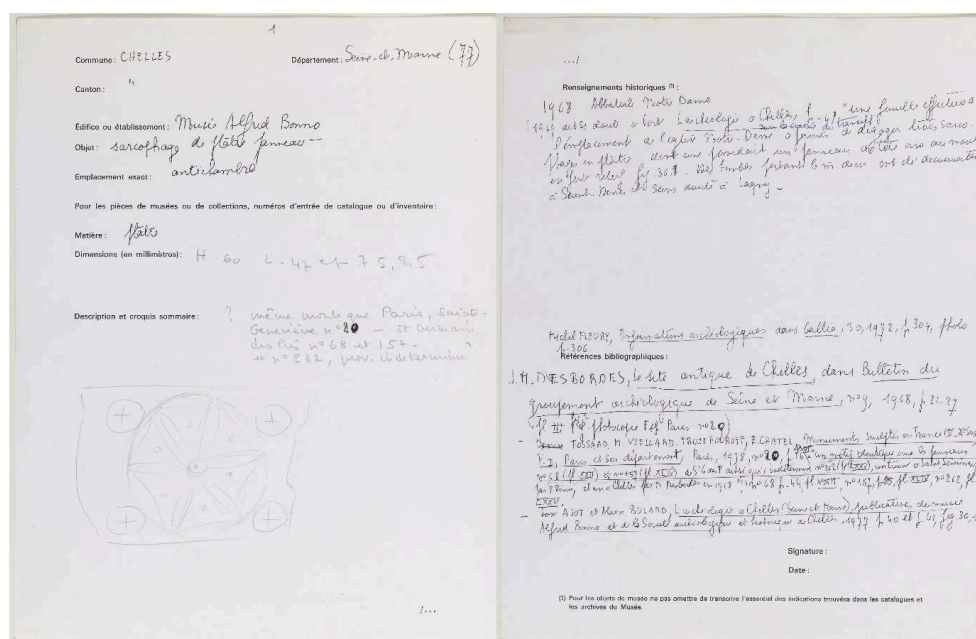 1
Commune: CHELLES
Département: Seine-et-Marne (77)
Canton: "
Édifice ou établissement: Musée Alfred Bonno
Objet: sarcophage de plâtre panneau
Emplacement exact: antichambre
Pour les pièces de musées ou de collections, numéros d'entrée de catalogue ou d'inventaire:
Matière: plâtre
Dimensions (en millimètres): H. 60 L. 47 ep 7 5, 8,5
Description et croquis sommaire: ? même moule que Paris, Sainte-
Geneviève n° 20 - St Germain
des Prés n° 68 et 157 -
et n° 262, prov. indéterminée
/...
.../
Renseignements historiques (1):
1968 Abbatiale Notre Dame
l'archéologie à Chelles, "une fouille effectuée à
l'emplacement de l'église Notre-Dame a permis de dégager trois sarco-
phages en plâtre dont un possédait un panneau de tête orné au
relief fig. 30. Des tombes portant le m décor ont été
à Saint-Denis et sans doute à Lagny -
Michel FLEURY, Informations archéologiques dans Gallia, 30, 1972, p. 304, photo
p. 306
Références bibliographiques:
J.M. DESBORDES, Le site antique de Chelles, dans Bulletin du
groupement archéologique de Seine et Marne, n° 9, 1968, p. 21-27
pl III photocopie Paris n° 20)
- FOSSARD, M. VIELLARD-TROIEKOUROFF, E. CHATEL, Monuments sculptés en France
T. I, Paris et son département, Paris, 1978, n° 20, un motif identique orne les panneaux
n° 68 et n° 157 n° 262
en 1968 n° 68 p. 44, pl XXII, n° 157, pl XLIV, n° 262, pl
LXXV.
- AJOT et Alain BULARD, L'archéologie à Chelles (Seine et Marne), publication du musée
Alfred Bonno et de la Société archéologique et historique de Chelles, 1977 p. 40 et p. 41, fig 30,
Signature:
Date:
(1) Pour les objets de musée ne pas omettre de transcrire l'essentiel des indications trouvées dans les catalogues et
les archives du Musée.